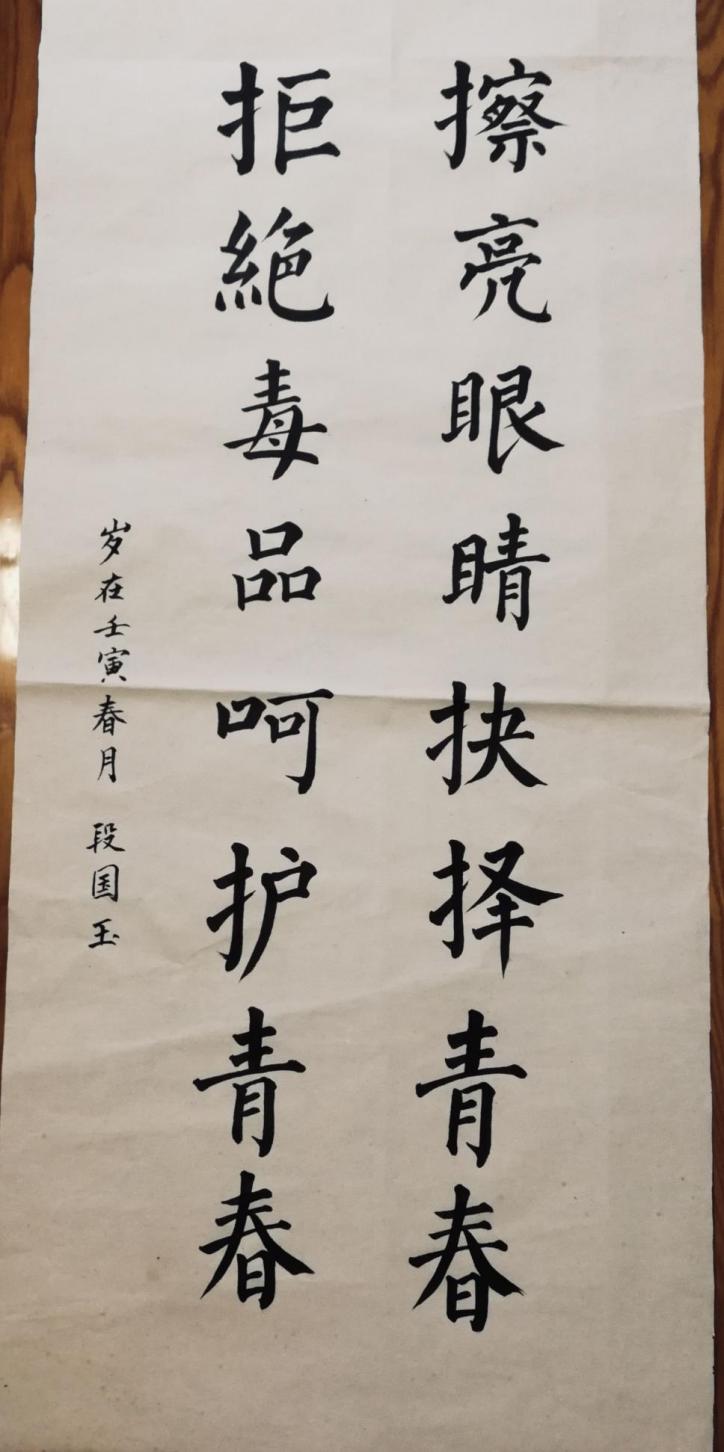 擦亮眼睛抉择青春
拒絶毒品呵护青春
岁在壬寅春月 段国玉